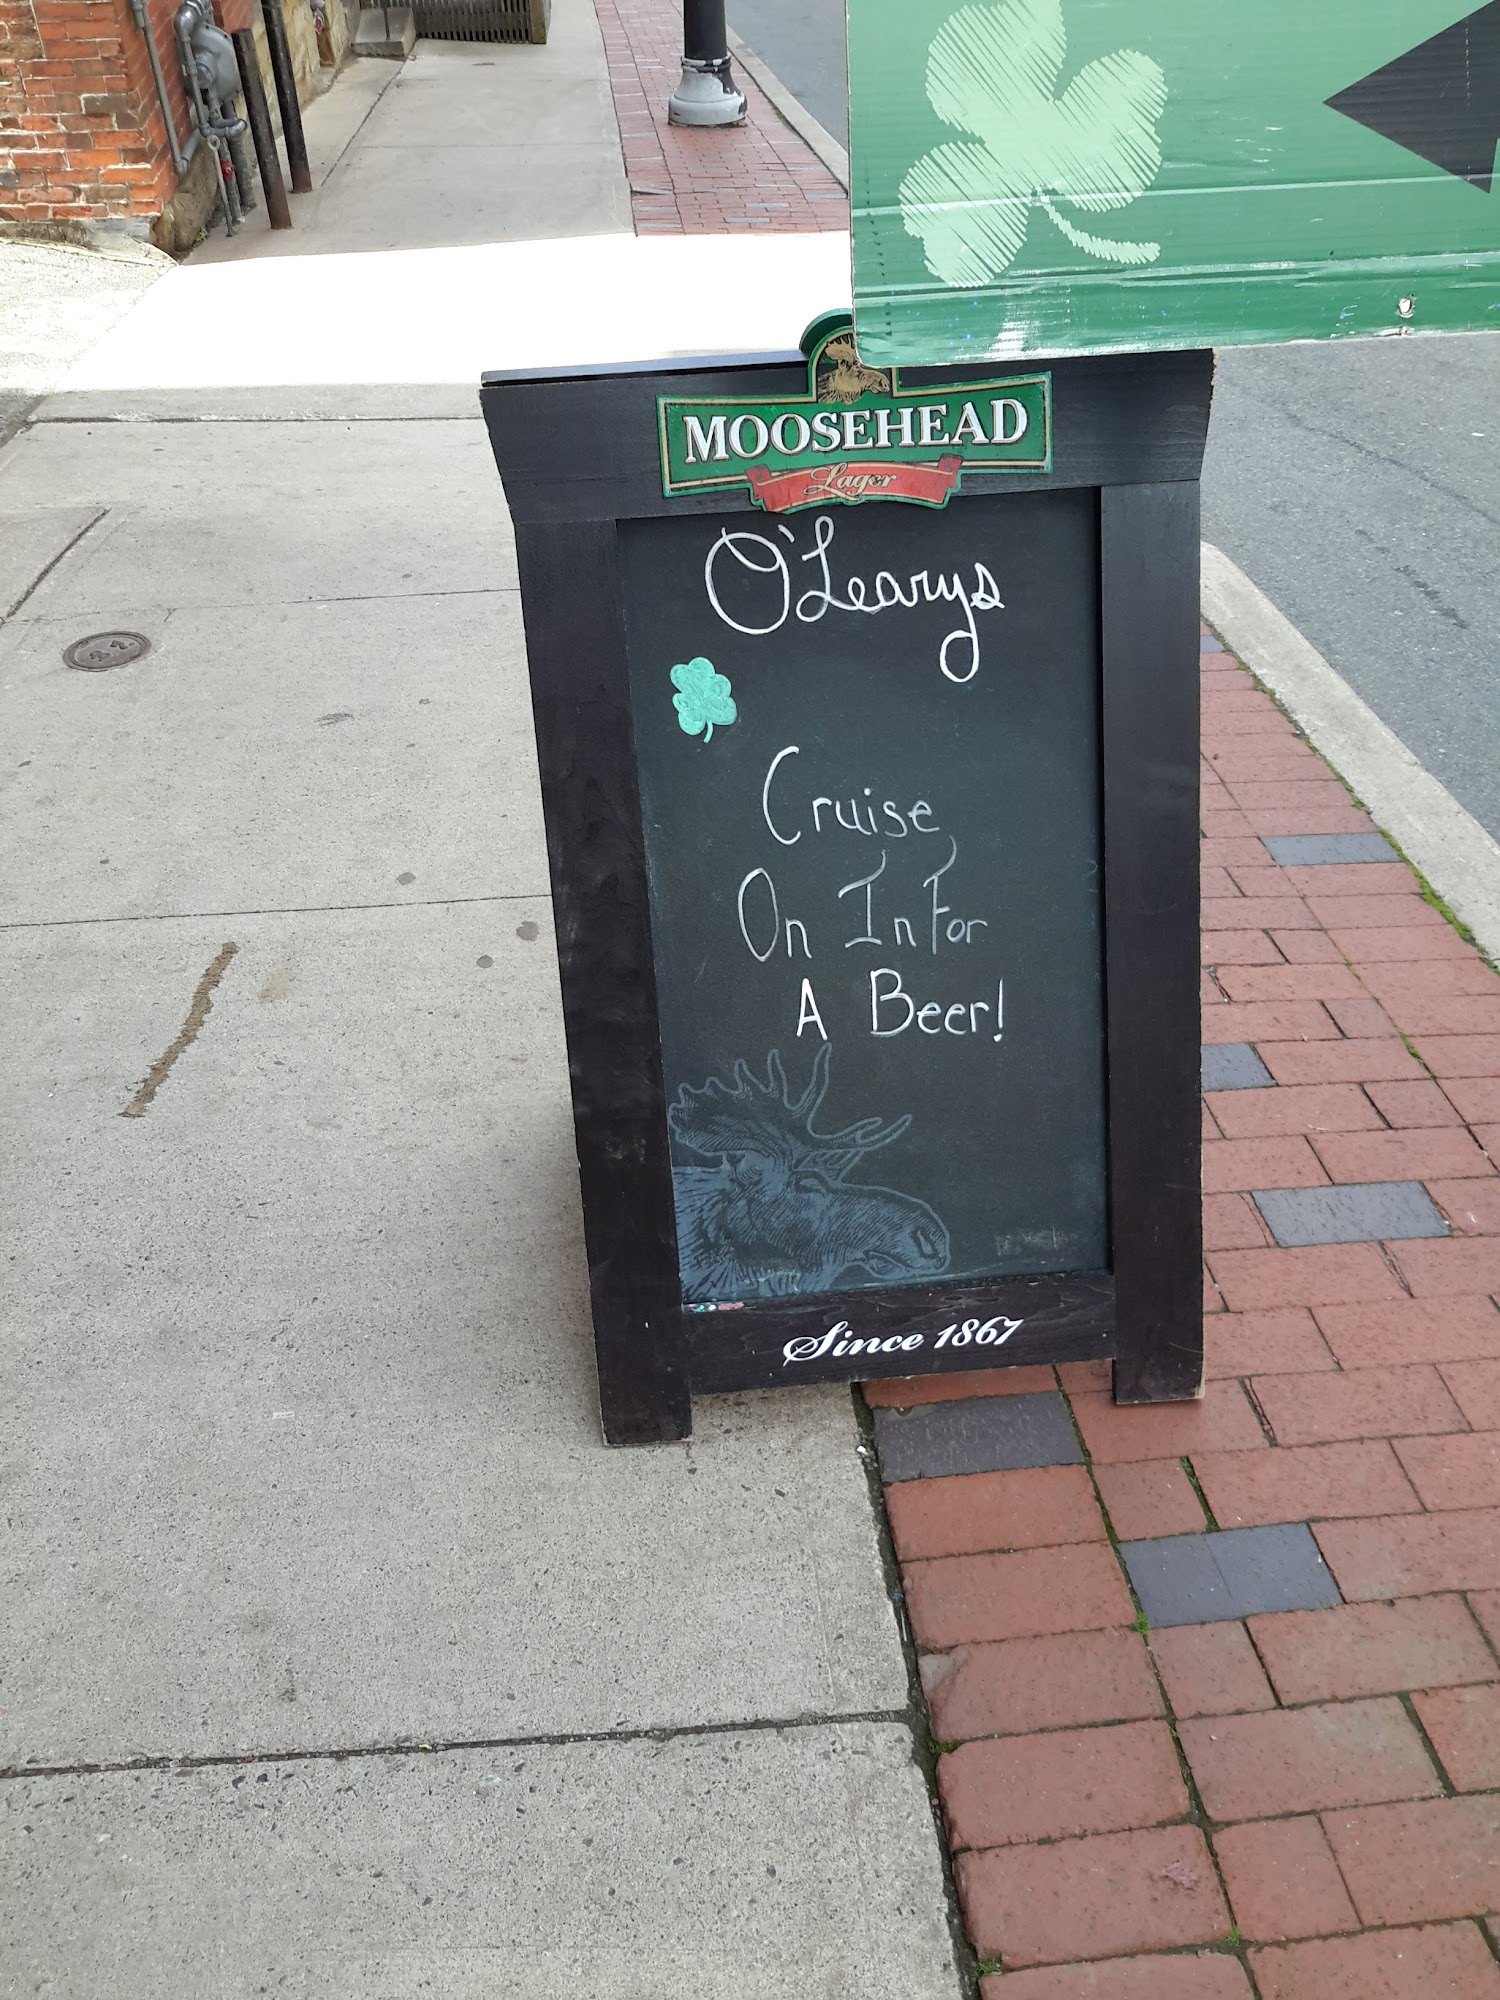 MOOSEHEAD
Lager
O'Learys
Cruise
On In For
A Beer!
Since 1867